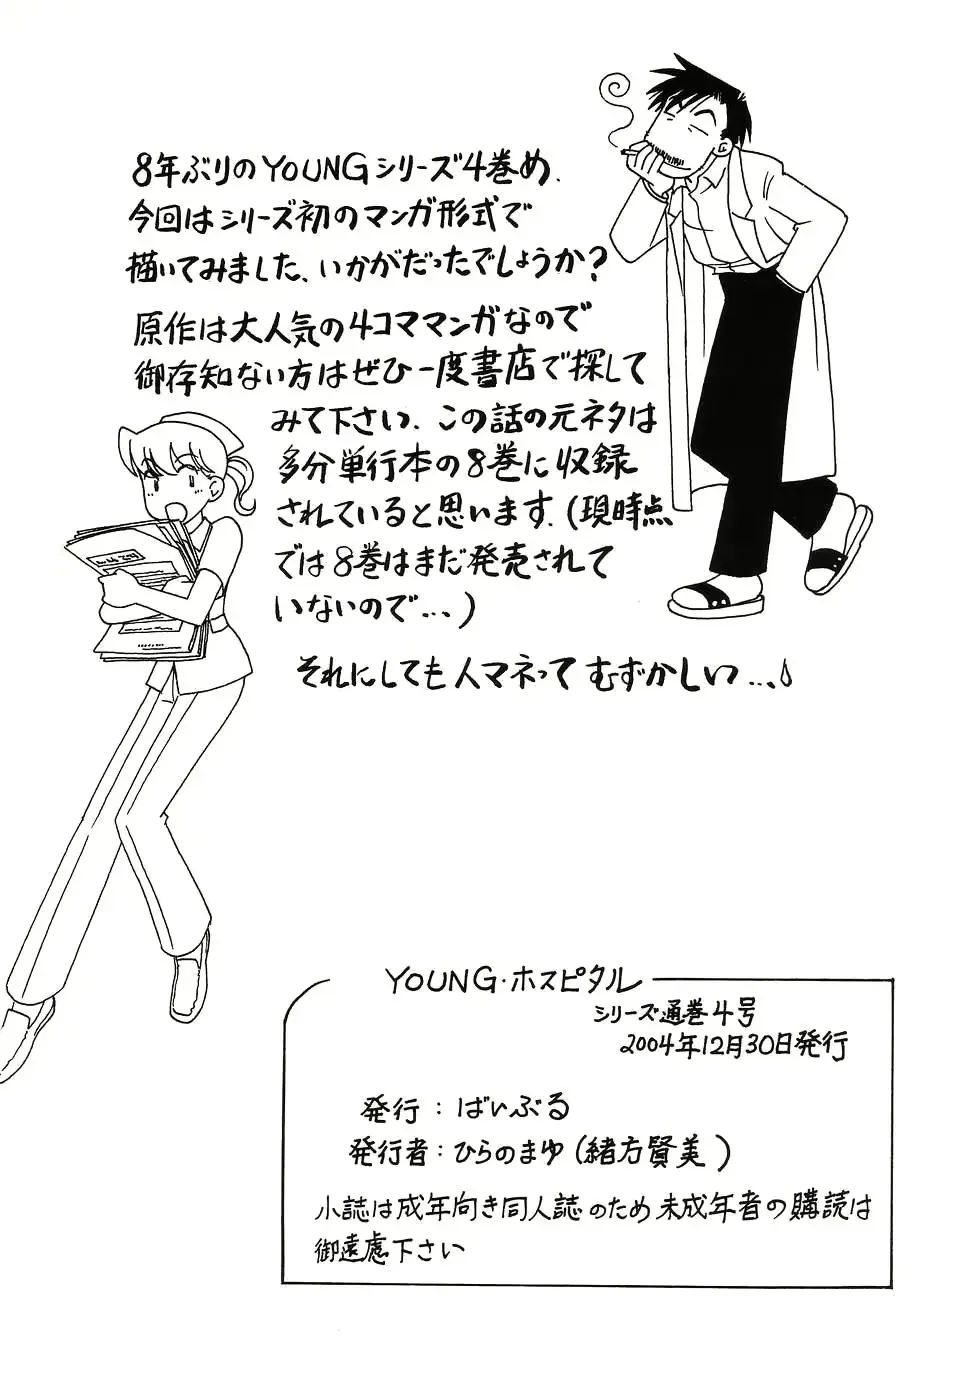 8年ぶりのYOUNGシリーズ4巻め.
今回はシリーズ初のマンガ形式で
描いてみました、いかがだったでしょうか?
原作は大人気の4コママンガなので
御存知ない方はぜひ一度書店で探して
みて下さい. この話の元ネタは
多分単行本の8巻に収録
されていると思います.(現時点
では8巻はまだ発売されて
いないので...)
それにしても人マネってむずかしい...
YOUNG・ホスピタル
シリーズ通巻4号
2004年12月30日発行
発行:ばいぶる
発行者:ひらのまゆ(緒方賢美)
小誌は成年向き同人誌のため未成年者の購読は
御遠慮下さい